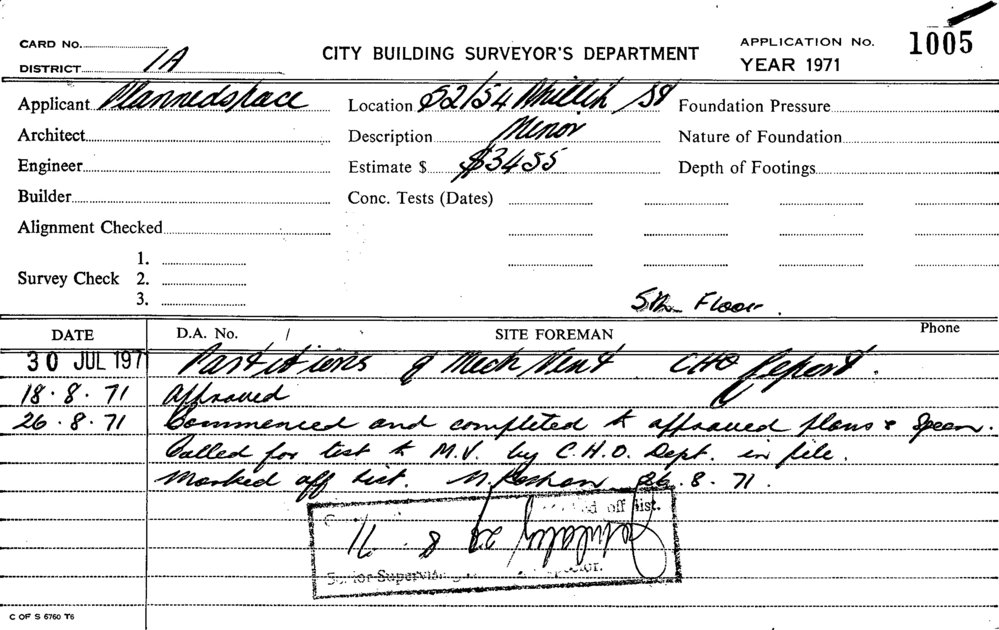 CARD No.
DISTRICT 1A
CITY BUILDING SURVEYOR'S DEPARTMENT
APPLICATION No. 1005
YEAR 1971
Applicant Plannedspace
Location 52/54 Phillip St
Foundation Pressure
Architect
Description Minor
Nature of Foundation
Engineer
Estimate $ $3455
Depth of Footings
Builder
Conc. Tests (Dates)
Alignment Checked
Survey Check 1.
2.
3.
5th Floor
DATE D.A. No. / SITE FOREMAN Phone
30 JUL 1971 Partitions & Mech Vent CHO Report.
18.8.71 Approved
26.8.71 Commenced and completed to approved plans & Specn.
Called for test to M.V. by C.H.O. Dept. in file.
Marked off list. 26.8.71.
off list.
8.71
Senior Supervising
C OF S 6760 T6